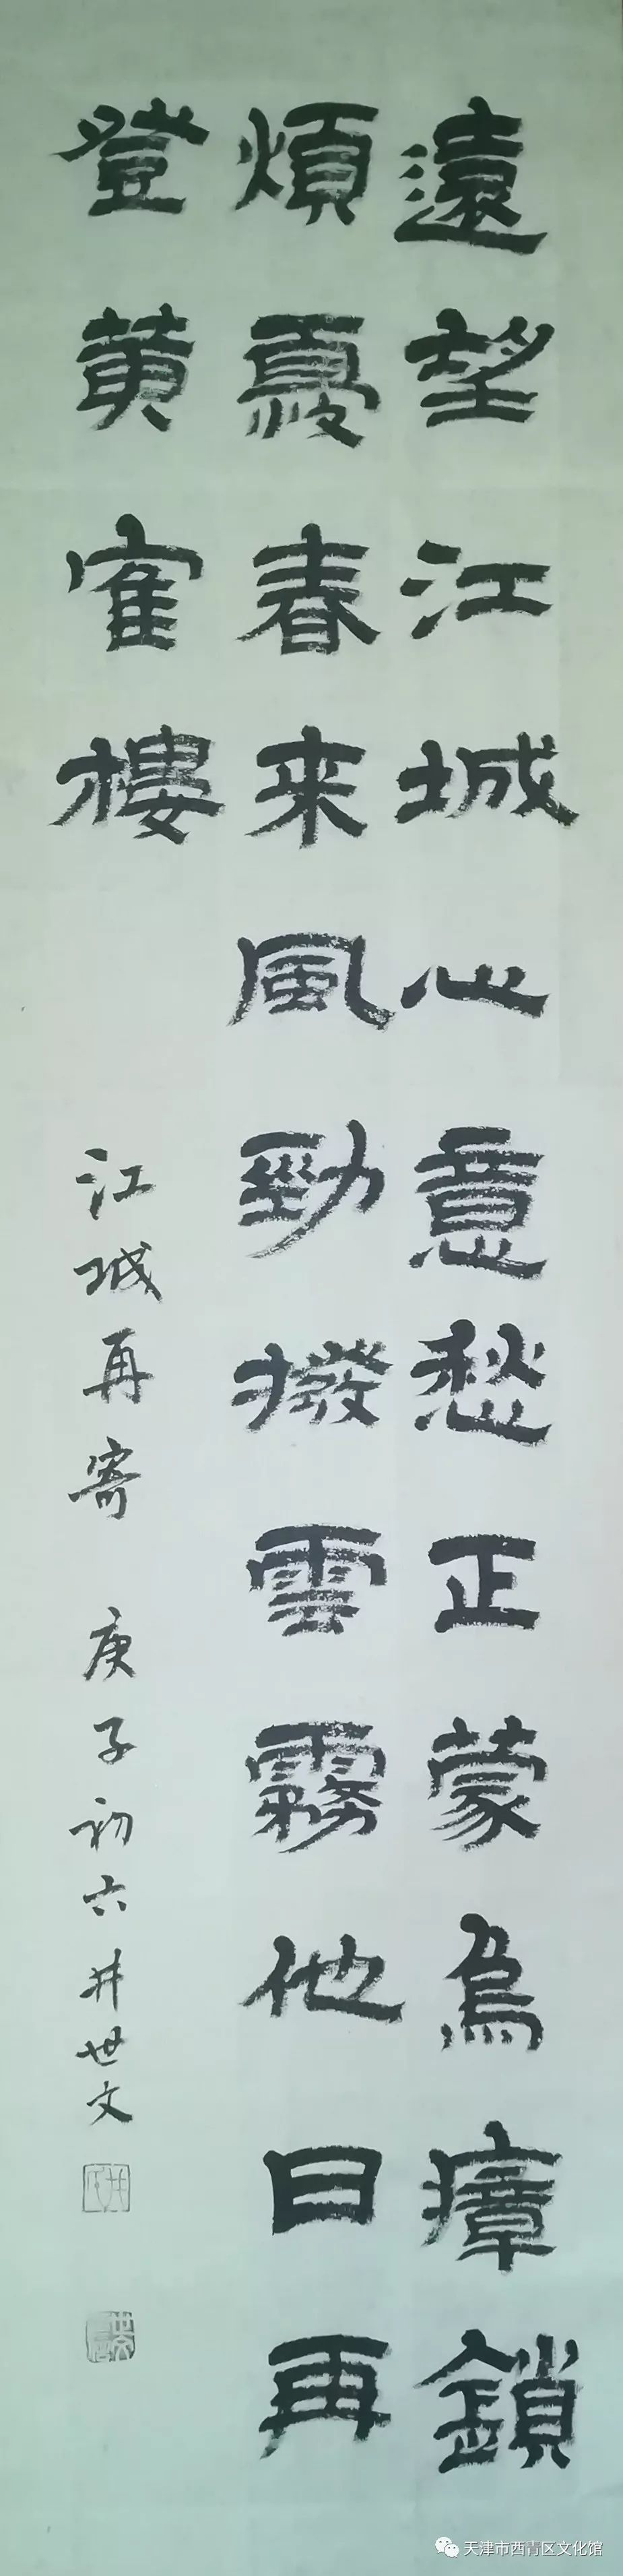 遠望江城心意愁正蒙烏瘴鎖
煩憂春来風勁撥雲霧他日再
登黄寉樓
江城再寄 庚子初六 井世文
天津市西青区文化馆